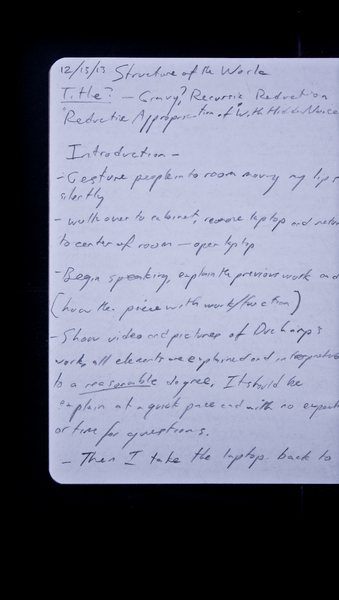 12/13/13 Structure of the Work
Title? - Gravy? Recursive Reduction
"Reductive Appropriation of With Hidden Noise
Introduction -
- Gesture people in to room moving my lips
silently
- walk over to cabinet, remove laptop and return
to center of room - open laptop
- Begin speaking, explain the previous work and
(how the piece with work/function)
- Show video and pictures of Duchamp's
work, all elements are explained and interpreted
to a reasonable degree. It should be
explain at a quick pace and with no
or time for questions.
- Then I take the laptop back to